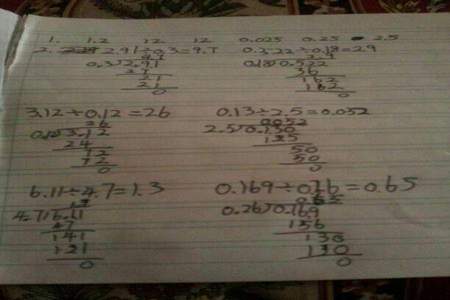 1. 1.2 12 12 0.025 0.25 2.5
2. 2.91÷0.3=9.7 0.522÷0.18=2.9
9.7
0.3 2.91 0.18 0.522
27 36
21 162
21 162
0 0
3.12÷0.12=26 0.13÷2.5=0.052
26 0.052
0.12 3.12 2.5 0.130
24 125
72 50
72 50
0 0
6.11÷4.7=1.3 0.169÷0.26=0.65
1.3
4.7 6.11 0.26 0.169
47 156
141 130
141 130
0 0